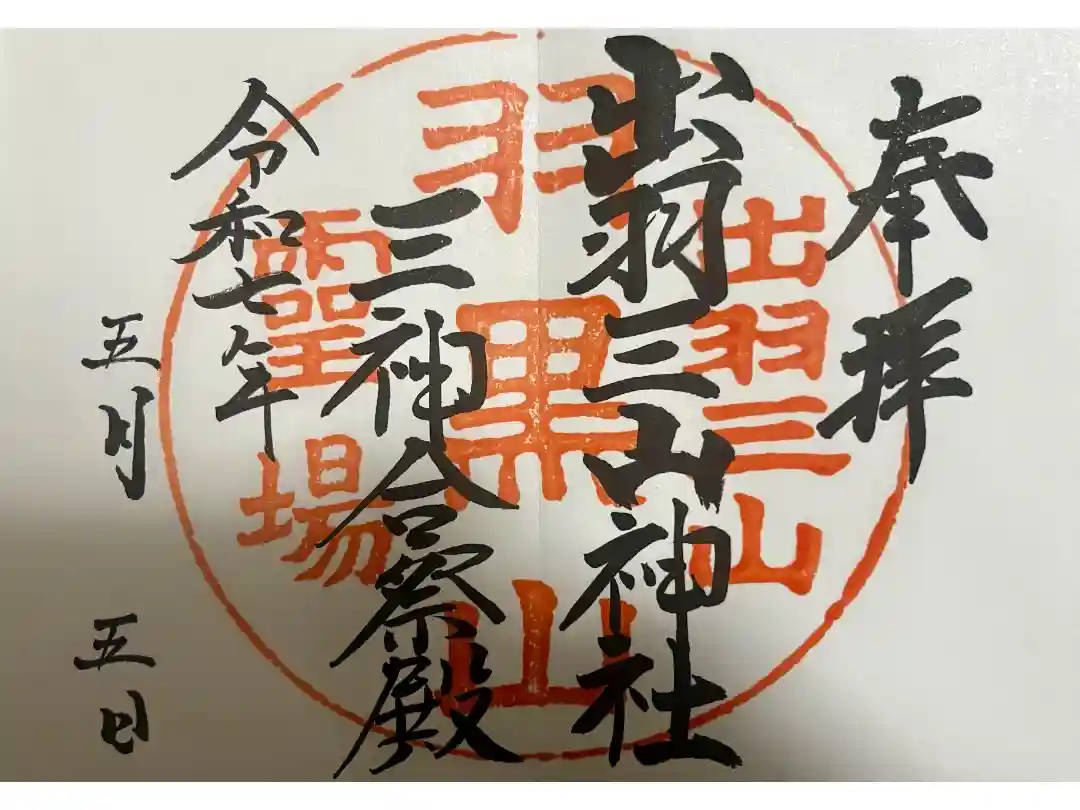 奉拝
出羽三山神社
三神合祭殿
令和七年
五月
五日
出羽三山
羽黒山
靈場